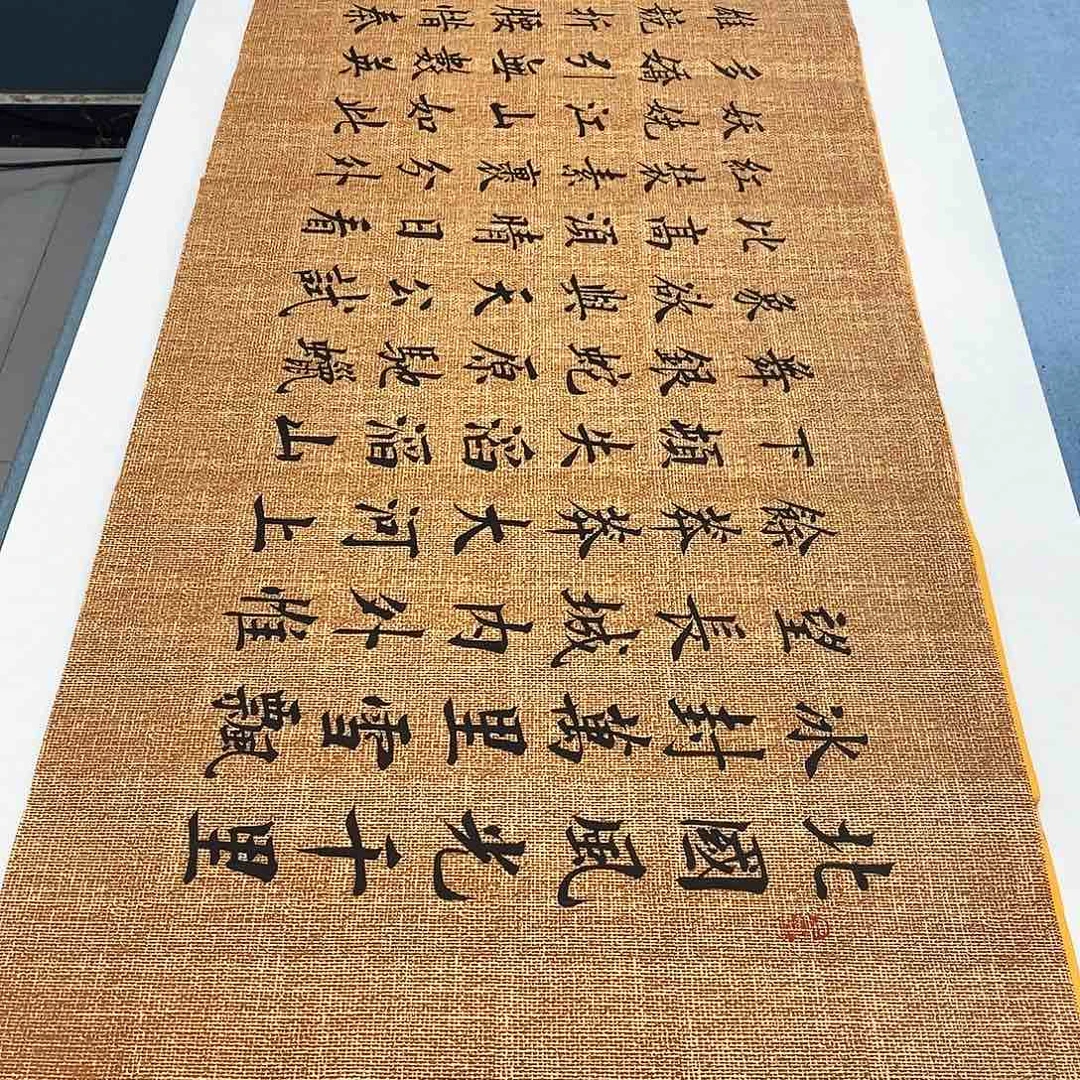 北國風光千里
冰封萬里雪飄
望長城内外惟
餘莽莽大河上
下頓失滔滔山
舞銀蛇原馳蠟
象欲與天公試
比高須晴日看
紅裝素裹分外
妖嬈江山如此
多嬌引無數英
雄競折腰惜秦